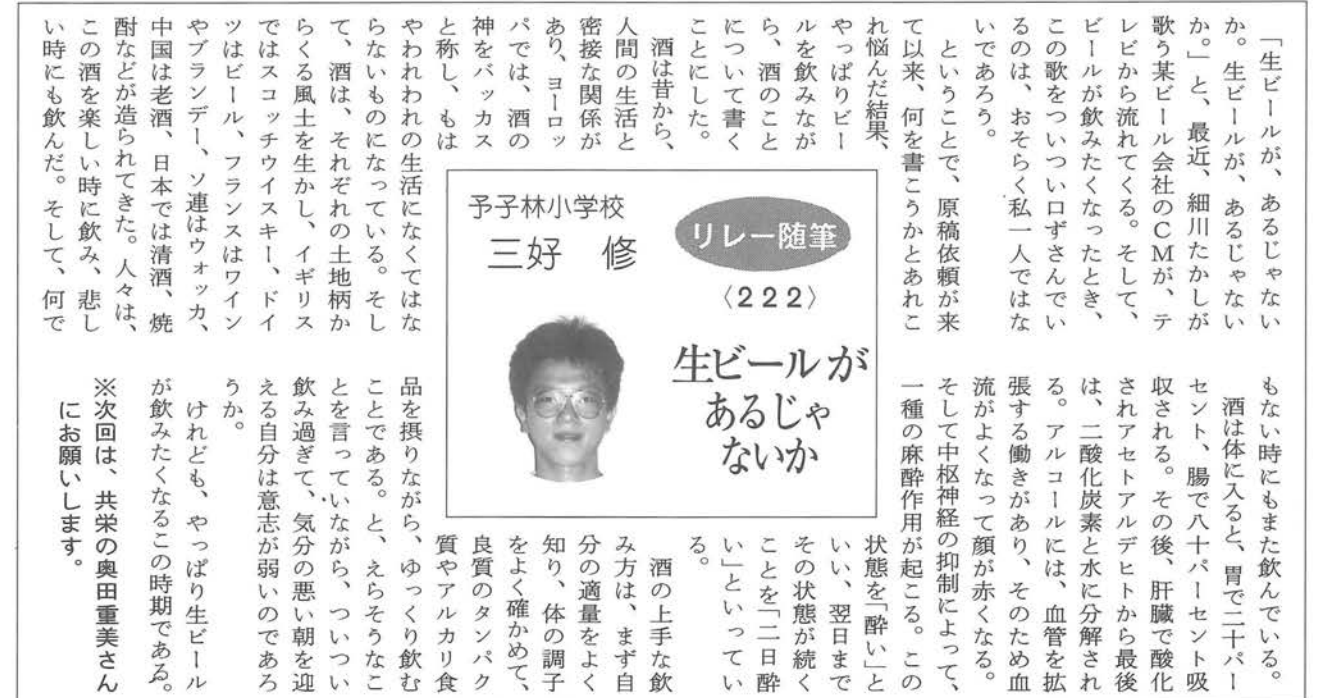 「生ビールが、あるじゃない
か。生ビールが、あるじゃない
か。」と、最近、細川たかしが
歌う某ビール会社のCMが、テ
レビから流れてくる。そして、
ビールが飲みたくなったとき、
この歌をついつい口ずさんでい
るのは、おそらく私一人ではな
いであろう。
ということで、原稿依頼が来
て以来、何を書こうかとあれこ
れ悩んだ結果、
やっぱりビー
ルを飲みなが
ら、酒のこと
について書く
ことにした。
酒は昔から、
人間の生活と
密接な関係が
あり、ヨーロッ
パでは、酒の
神をバッカス
と称し、もは
やわれわれの生活になくてはな
らないものになっている。そし
て、酒は、それぞれの土地柄か
らくる風土を生かし、イギリス
ではスコッチウイスキー、ドイ
ツはビール、フランスはワイン
やブランデー、ソ連はウォッカ、
中国は老酒、日本では清酒、焼
酎などが造られてきた。人々は、
この酒を楽しい時に飲み、悲し
い時にも飲んだ。そして、何で
リレー随筆
〈222〉
生ビールが
あるじゃ
ないか
予子林小学校
三好 修
もない時にもまた飲んでいる。
酒は体に入ると、胃で二十パー
セント、腸で八十パーセント吸
収される。その後、肝臓で酸化
されアセトアルデヒトから最後
は、二酸化炭素と水に分解され
る。アルコールには、血管を拡
張する働きがあり、そのため血
流がよくなって顔が赤くなる。
そして中枢神経の抑制によって、
一種の麻酔作用が起こる。この
状態を「酔い」と
いい、翌日まで
その状態が続く
ことを「二日酔
い」といってい
る。
酒の上手な飲
み方は、まず自
分の適量をよく
知り、体の調子
をよく確かめて、
良質のタンパク
質やアルカリ食
品を摂りながら、ゆっくり飲む
ことである。と、えらそうなこ
とを言っていながら、ついつい
飲み過ぎて、気分の悪い朝を迎
える自分は意志が弱いのであろ
うか。
けれども、やっぱり生ビール
が飲みたくなるこの時期である。
※次回は、共栄の奥田重美さん
にお願いします。